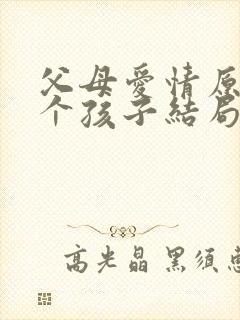 父母愛情原
个孩子結局
高光晶 黑須